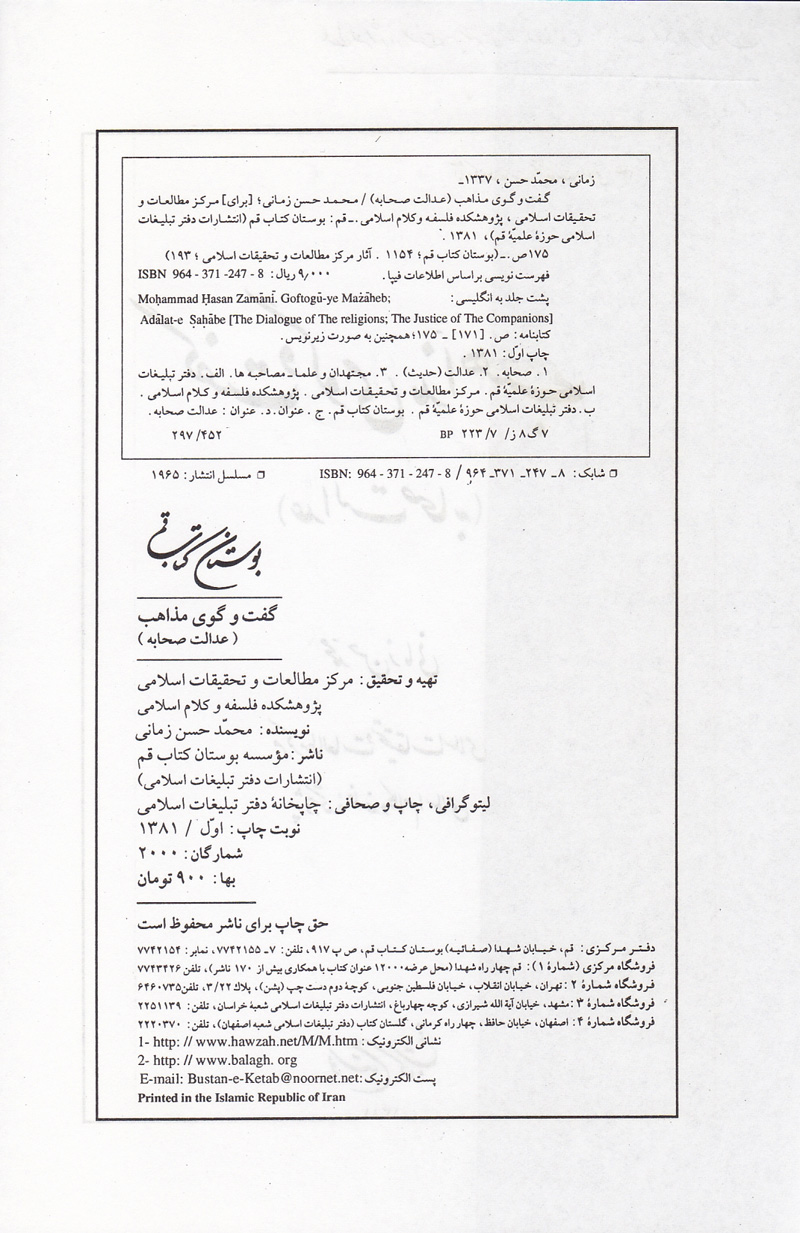 زمانی، محمّد حسن، ۱۳۳۷ـ
گفت و گوی مذاهب (عدالت صحابه) / محمد حسن زمانی؛ [برای] مرکز مطالعات و
تحقیقات اسلامی، پژوهشکده فلسفه و کلام اسلامی. ـ قم: بوستان کتاب قم (انتشارات دفتر تبلیغات
اسلامی حوزهٔ علمیّهٔ قم)، ۱۳۸۱.
۱۷۵ص. ـ (بوستان کتاب قم؛ ۱۱۵۴. آثار مرکز مطالعات و تحقیقات اسلامی؛ ۱۹۳)
ISBN 964 - 371 -247 - 8 :۹٫۰۰۰ ریال
فهرست نویسی براساس اطلاعات فیپا.
پشت جلد به انگلیسی: Moḥammad Ḥasan Zamāni. Goftogū-ye Maẓāheb;
Adālat-e Ṣaḥābe [The Dialogue of The religions; The Justice of The Companions]
کتابنامه: ص. [۱۷۱] ـ ۱۷۵؛ همچنین به صورت زیرنویس.
چاپ اوّل: ۱۳۸۱.
۱. صحابه. ۲. عدالت (حدیث). ۳. مجتهدان و علما ـ مصاحبه ها. الف. دفتر تبلیغات
اسلامی حوزهٔ علمیّهٔ قم. مرکز مطالعات و تحقیقات اسلامی. پژوهشکده فلسفه و کلام اسلامی.
ب. دفتر تبلیغات اسلامی حوزه علمیّهٔ قم. بوستان کتاب قم. ج. عنوان. د. عنوان: عدالت صحابه.
۷ گ۸ ز/ ۲۲۳/۷ BP ۲۹۷/۴۵۲
شابک: ۸ ـ ۲۴۷ ـ ۳۷۱ ـ ۹۶۴ / ISBN: 964 - 371 - 247 - 8 مسلسل انتشار: ۱۹۶۵
بوستان کتاب قم
گفت و گوی مذاهب
(عدالت صحابه)
تهیه و تحقیق: مرکز مطالعات و تحقیقات اسلامی
پژوهشکده فلسفه و کلام اسلامی
نویسنده: محمّد حسن زمانی
ناشر: مؤسسه بوستان کتاب قم
(انتشارات دفتر تبلیغات اسلامی)
لیتوگرافی، چاپ و صحافی: چاپخانهٔ دفتر تبلیغات اسلامی
نوبت چاپ: اوّل / ۱۳۸۱
شمارگان: ۲۰۰۰
بها: ۹۰۰ تومان
حق چاپ برای ناشر محفوظ است
دفتر مرکزی: قم، خیابان شهدا (صفائیه) بوستان کتاب قم، ص پ ۹۱۷، تلفن: ۷ـ ۷۷۴۲۱۵۵، نمابر: ۷۷۴۲۱۵۴
فروشگاه مرکزی (شمارهٔ ۱): قم چهار راه شهدا (محل عرضه ۱۲۰۰۰ عنوان کتاب با همکاری بیش از ۱۷۰ ناشر)، تلفن ۷۷۴۳۴۲۶
فروشگاه شمارهٔ ۲: تهران، خیابان انقلاب، خیابان فلسطین جنوبی، کوچهٔ دوم دست چپ (پشن)، پلاک ۳/۲۲، تلفن۶۴۶۰۷۳۵
فروشگاه شمارهٔ ۳: مشهد، خیابان آیة الله شیرازی، کوچه چهارباغ، انتشارات دفتر تبلیغات اسلامی شعبهٔ خراسان، تلفن: ۲۲۵۱۱۳۹
فروشگاه شمارهٔ ۴: اصفهان، خیابان حافظ، چهارراه کرمانی، گلستان کتاب (دفتر تبلیغات اسلامی شعبه اصفهان)، تلفن: ۲۲۲۰۳۷۰
نشانی الکترونیک: 1- http: // www.hawzah.net/M/M.htm
2- http: // www.balagh. org
پست الکترونیک: E-mail: Bustan-e-Ketab@noornet.net
Printed in the Islamic Republic of Iran